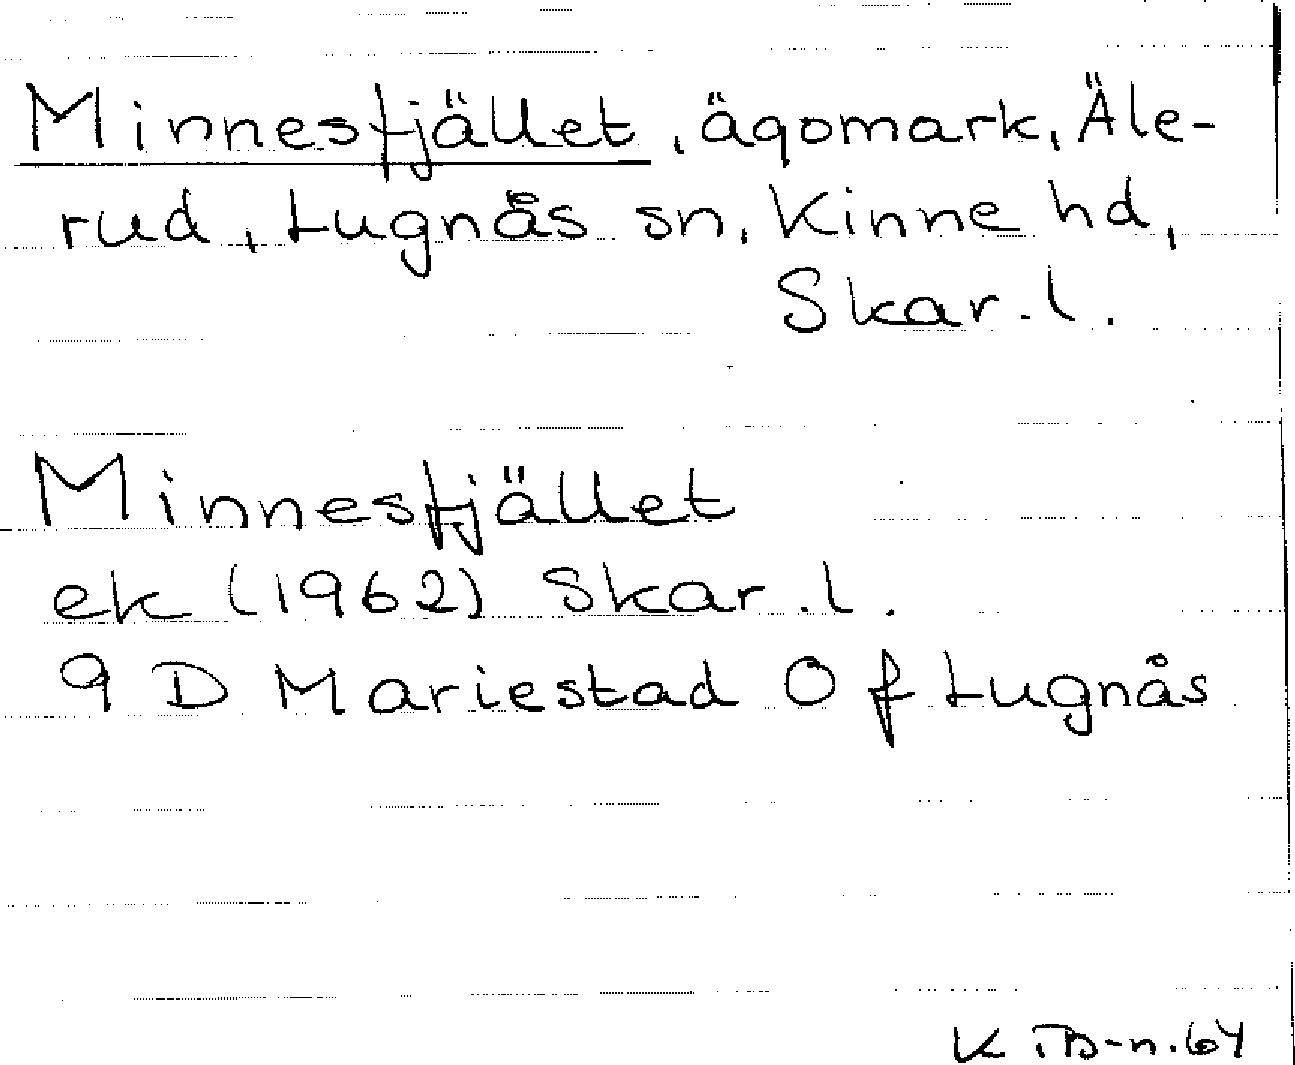 Minnesfjället, ägomark, Äle-
rud, Lugnås sn, Kinne hd,
Skar. l.
Minnesfjället
ek (1962) Skar. l.
9 D Mariestad O f Lugnås
K. 64